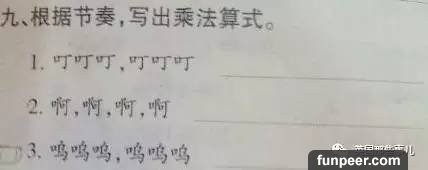 九、根据节奏,写出乘法算式。
1. 叮叮叮,叮叮叮
2. 啊,啊,啊,啊
3. 呜呜呜,呜呜呜
英国那些事儿
funpeer.com